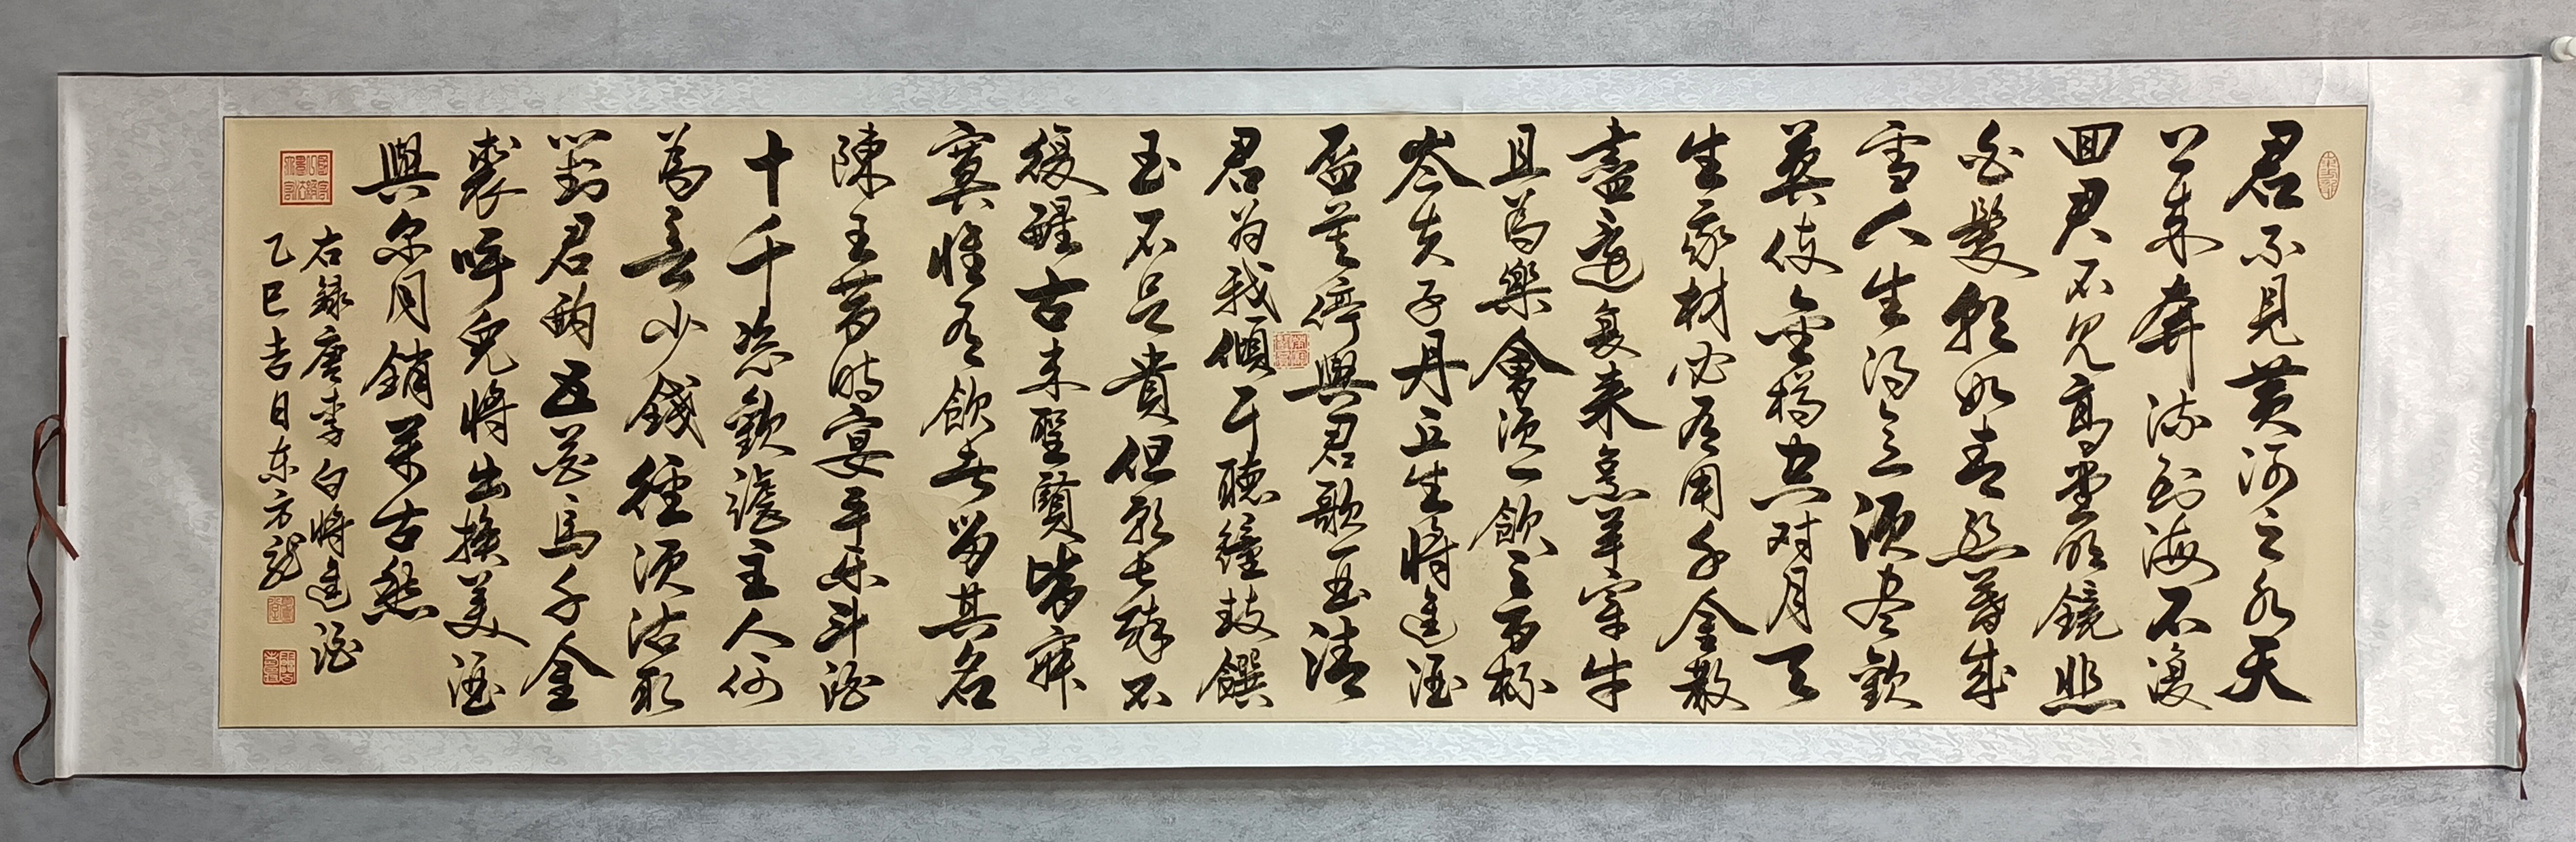 君不見黃河之水天
上来奔流到海不復
回君不見高堂明鏡悲
白髮朝如青絲暮成
雪人生得意須尽歡
莫使金樽空对月天
生我材必有用千金散
盡還復来烹羊宰牛
且為樂會須一飲三百杯
岑夫子丹丘生將進酒
盃莫停與君歌一曲請
君为我傾耳聽鐘鼓饌
玉不足貴但願长醉不
復醒古来聖賢皆寂
寞惟有飲者留其名
陳王昔時宴平乐斗酒
十千恣歡謔主人何
為言少錢徑須沽取
對君酌五花馬千金
裘呼兒將出換美酒
與尔同銷萬古愁
右録唐李白將進酒
乙巳吉日东方龙